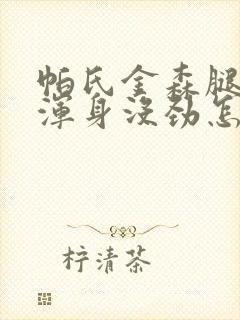 帕氏金森腿
渾身没劲怎
柠清茶